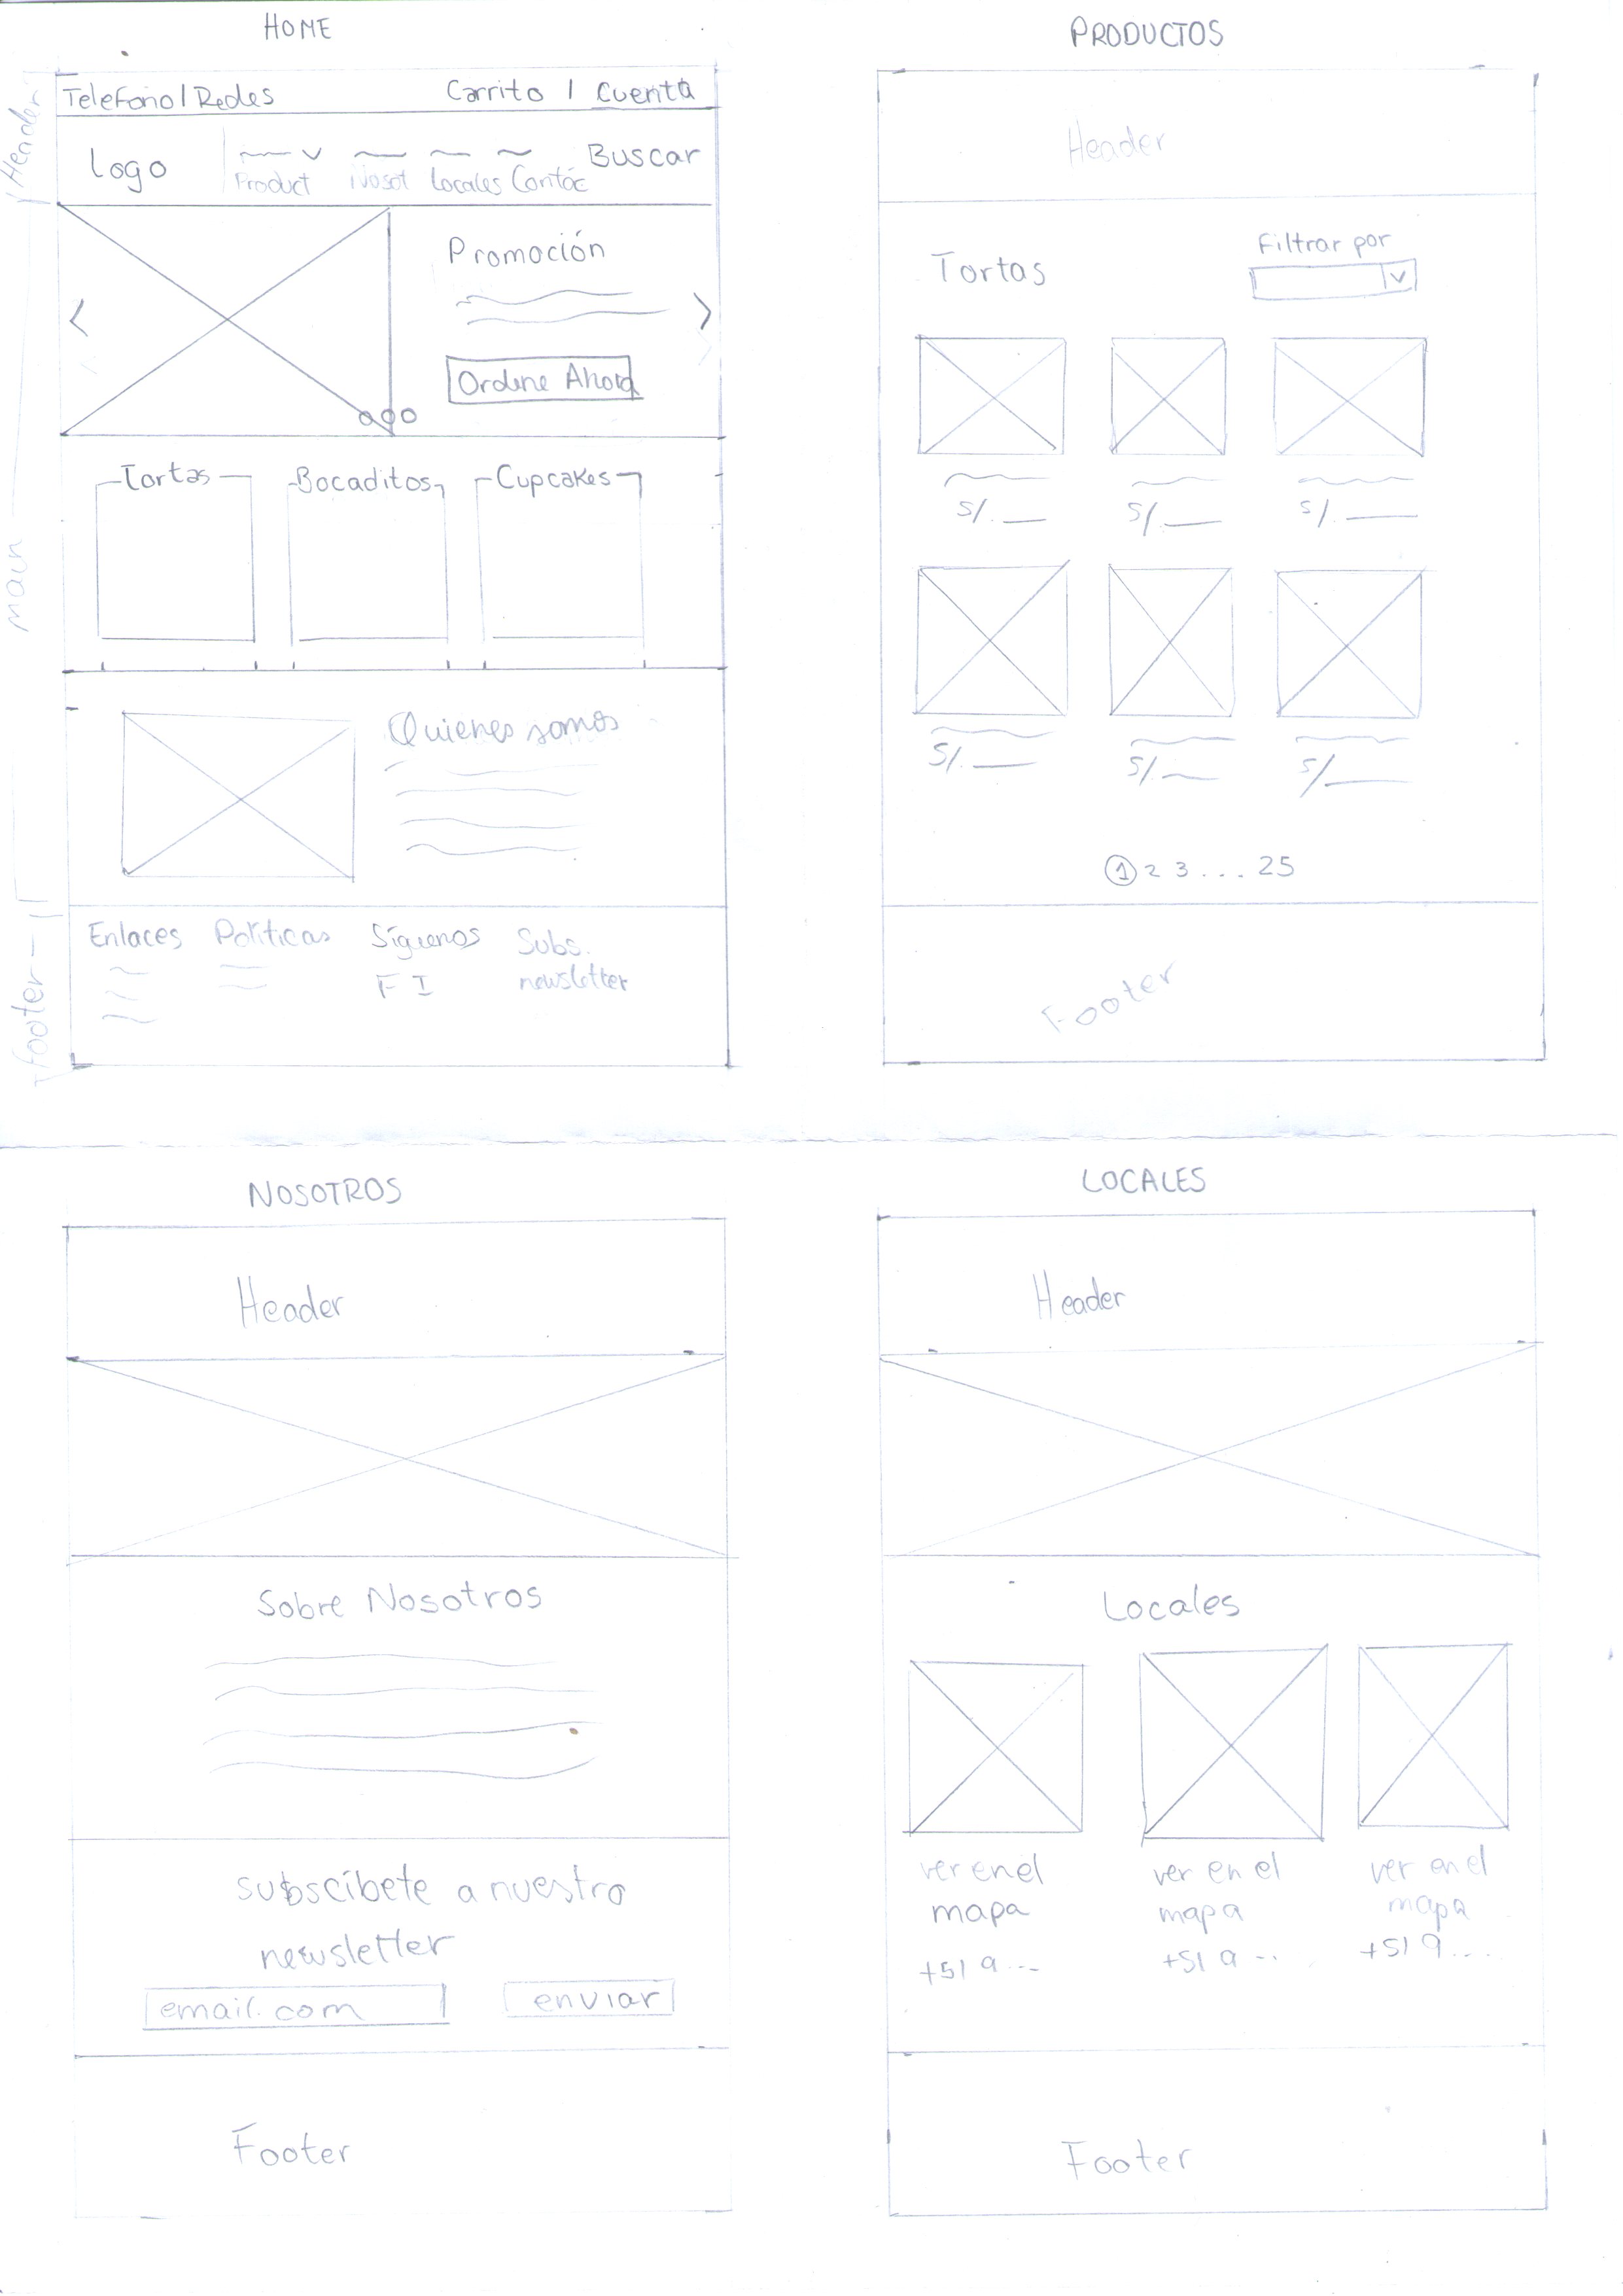 HOME
Header
main
Footer
Telefono | Redes Carrito | Cuenta
Logo Product Nosot Locales Contác Buscar
Promoción
Ordene Ahora
Tortas Bocaditos Cupcakes
Quienes somos
Enlaces Políticas Síguenos Subs.
F I newsletter
PRODUCTOS
Header
Filtrar por
Tortas
S/. S/. S/.
S/. S/. S/
1 2 3 ... 25
Footer
NOSOTROS
Header
Sobre Nosotros
subscíbete a nuestro
newsletter
email.com enviar
Footer
LOCALES
Header
Locales
ver en el ver en el ver en el
mapa mapa mapa
+51 9... +51 9... +51 9....
Footer